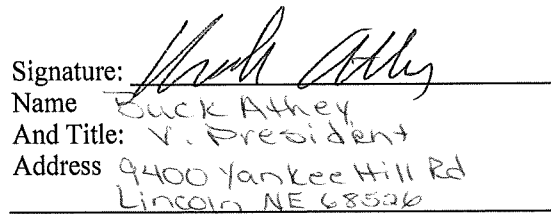 Signature: Buck Athey
Name Buck Athey
And Title: V. President
Address 9400 Yankee Hill Rd
Lincoln NE 68526